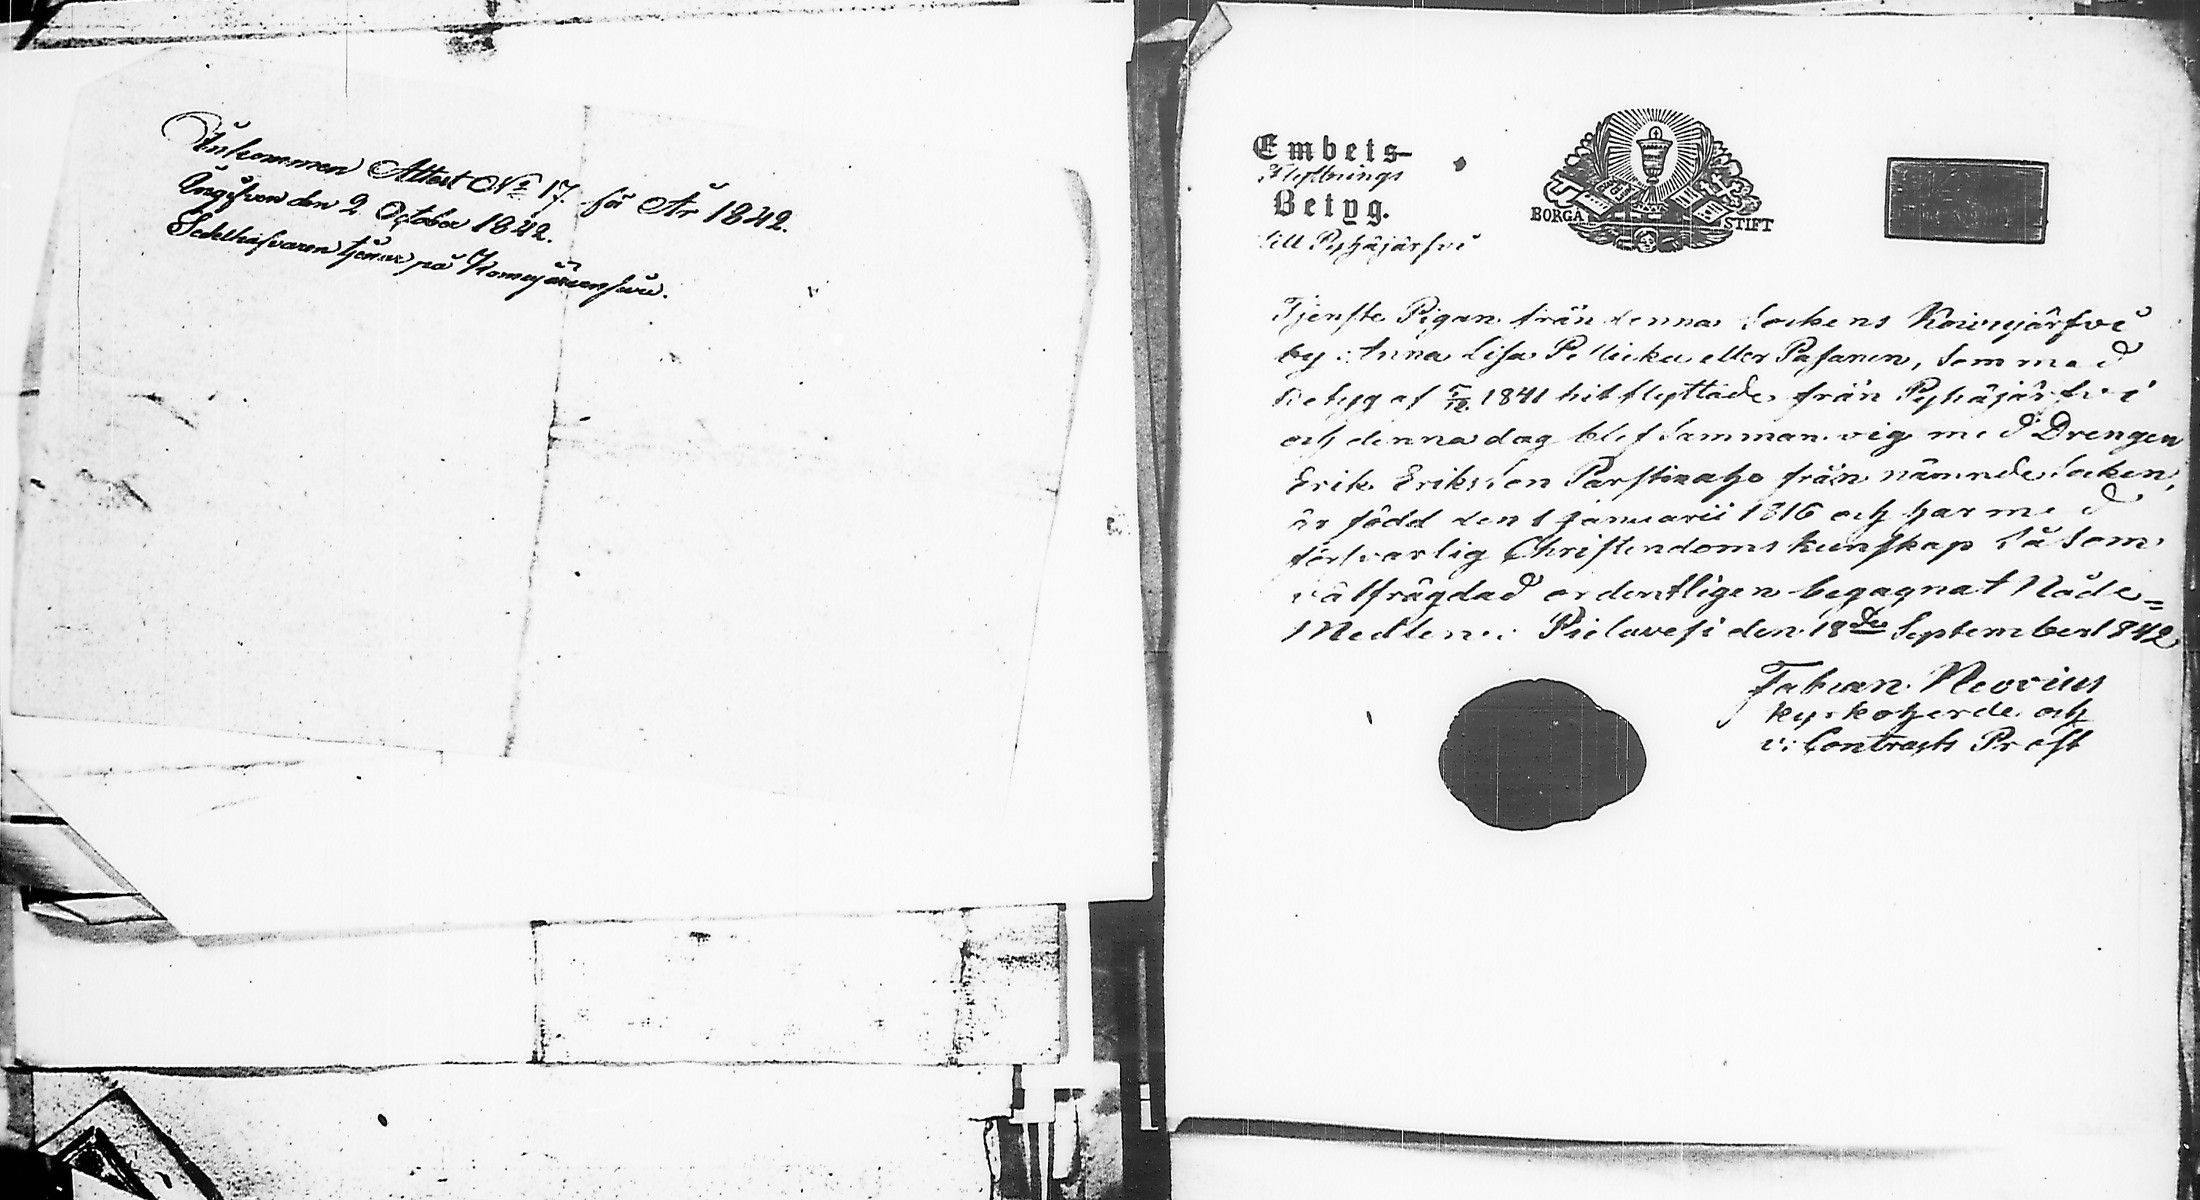 Inkommen Attest No 17. för År 1842.
Angifven den 2. October 1842.
Sedelhafvaren tjenar på
Embets-
Flyttnings
Betyg.
till Pyhäjärfvi
BORGÅ STIFT
Tjenste Pigan från denna Sockens Koivujärfvi
by Anna Lisa eller Pasanen, som med
Betyg af 1841 hit flyttade från Pyhäjärfvi
och denna dag blef sammanvig med Drengen
Erik Eriksson från nämnde Socken,
är född den 1 Januarii 1816 och har med
försvarlig Christendoms kunskap såsom
välfrägdad ordentligen begagnat Nåde=
Medlen. Pielavesi den 18de September 1842
Fabian Neovius
Kyrkoherde och
v: Contracts Prost